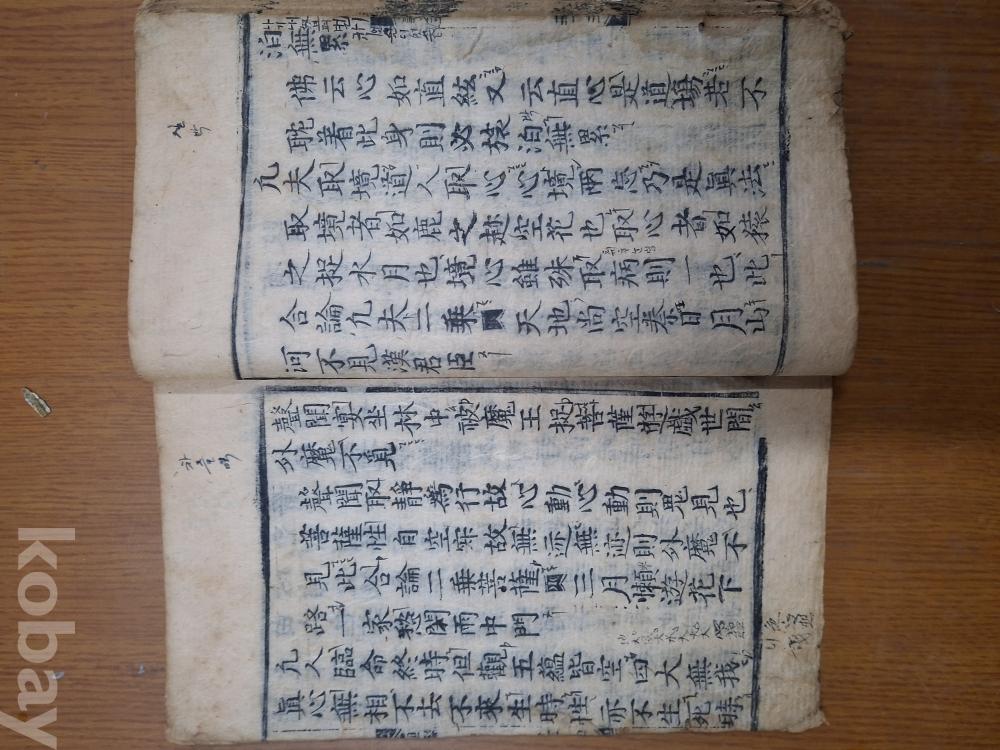 泊無累
佛云心如直絃又云直心是道場若不
耽着此身則必旅泊無累
凡夫取境道人取心心境兩忘乃是眞法
取境者如鹿之趂空花也取心者如猿
之捉水月也境心雖殊取病則一也此
合論凡夫二乘 天地尚空秦日月山
河不見漢君臣
聲聞宴坐林中被魔王捉菩薩遊戲世間
外魔不覓
聲聞取靜爲行故心動心動則鬼見也
菩薩性自空寂故無迹無迹則外魔不
見此合論二乘菩薩 三月懶遊花下
路一家愁閉雨中門
凡人臨命終時但觀五蘊皆空四大無我
眞心無相不去不來生時性亦不生死時
kobay